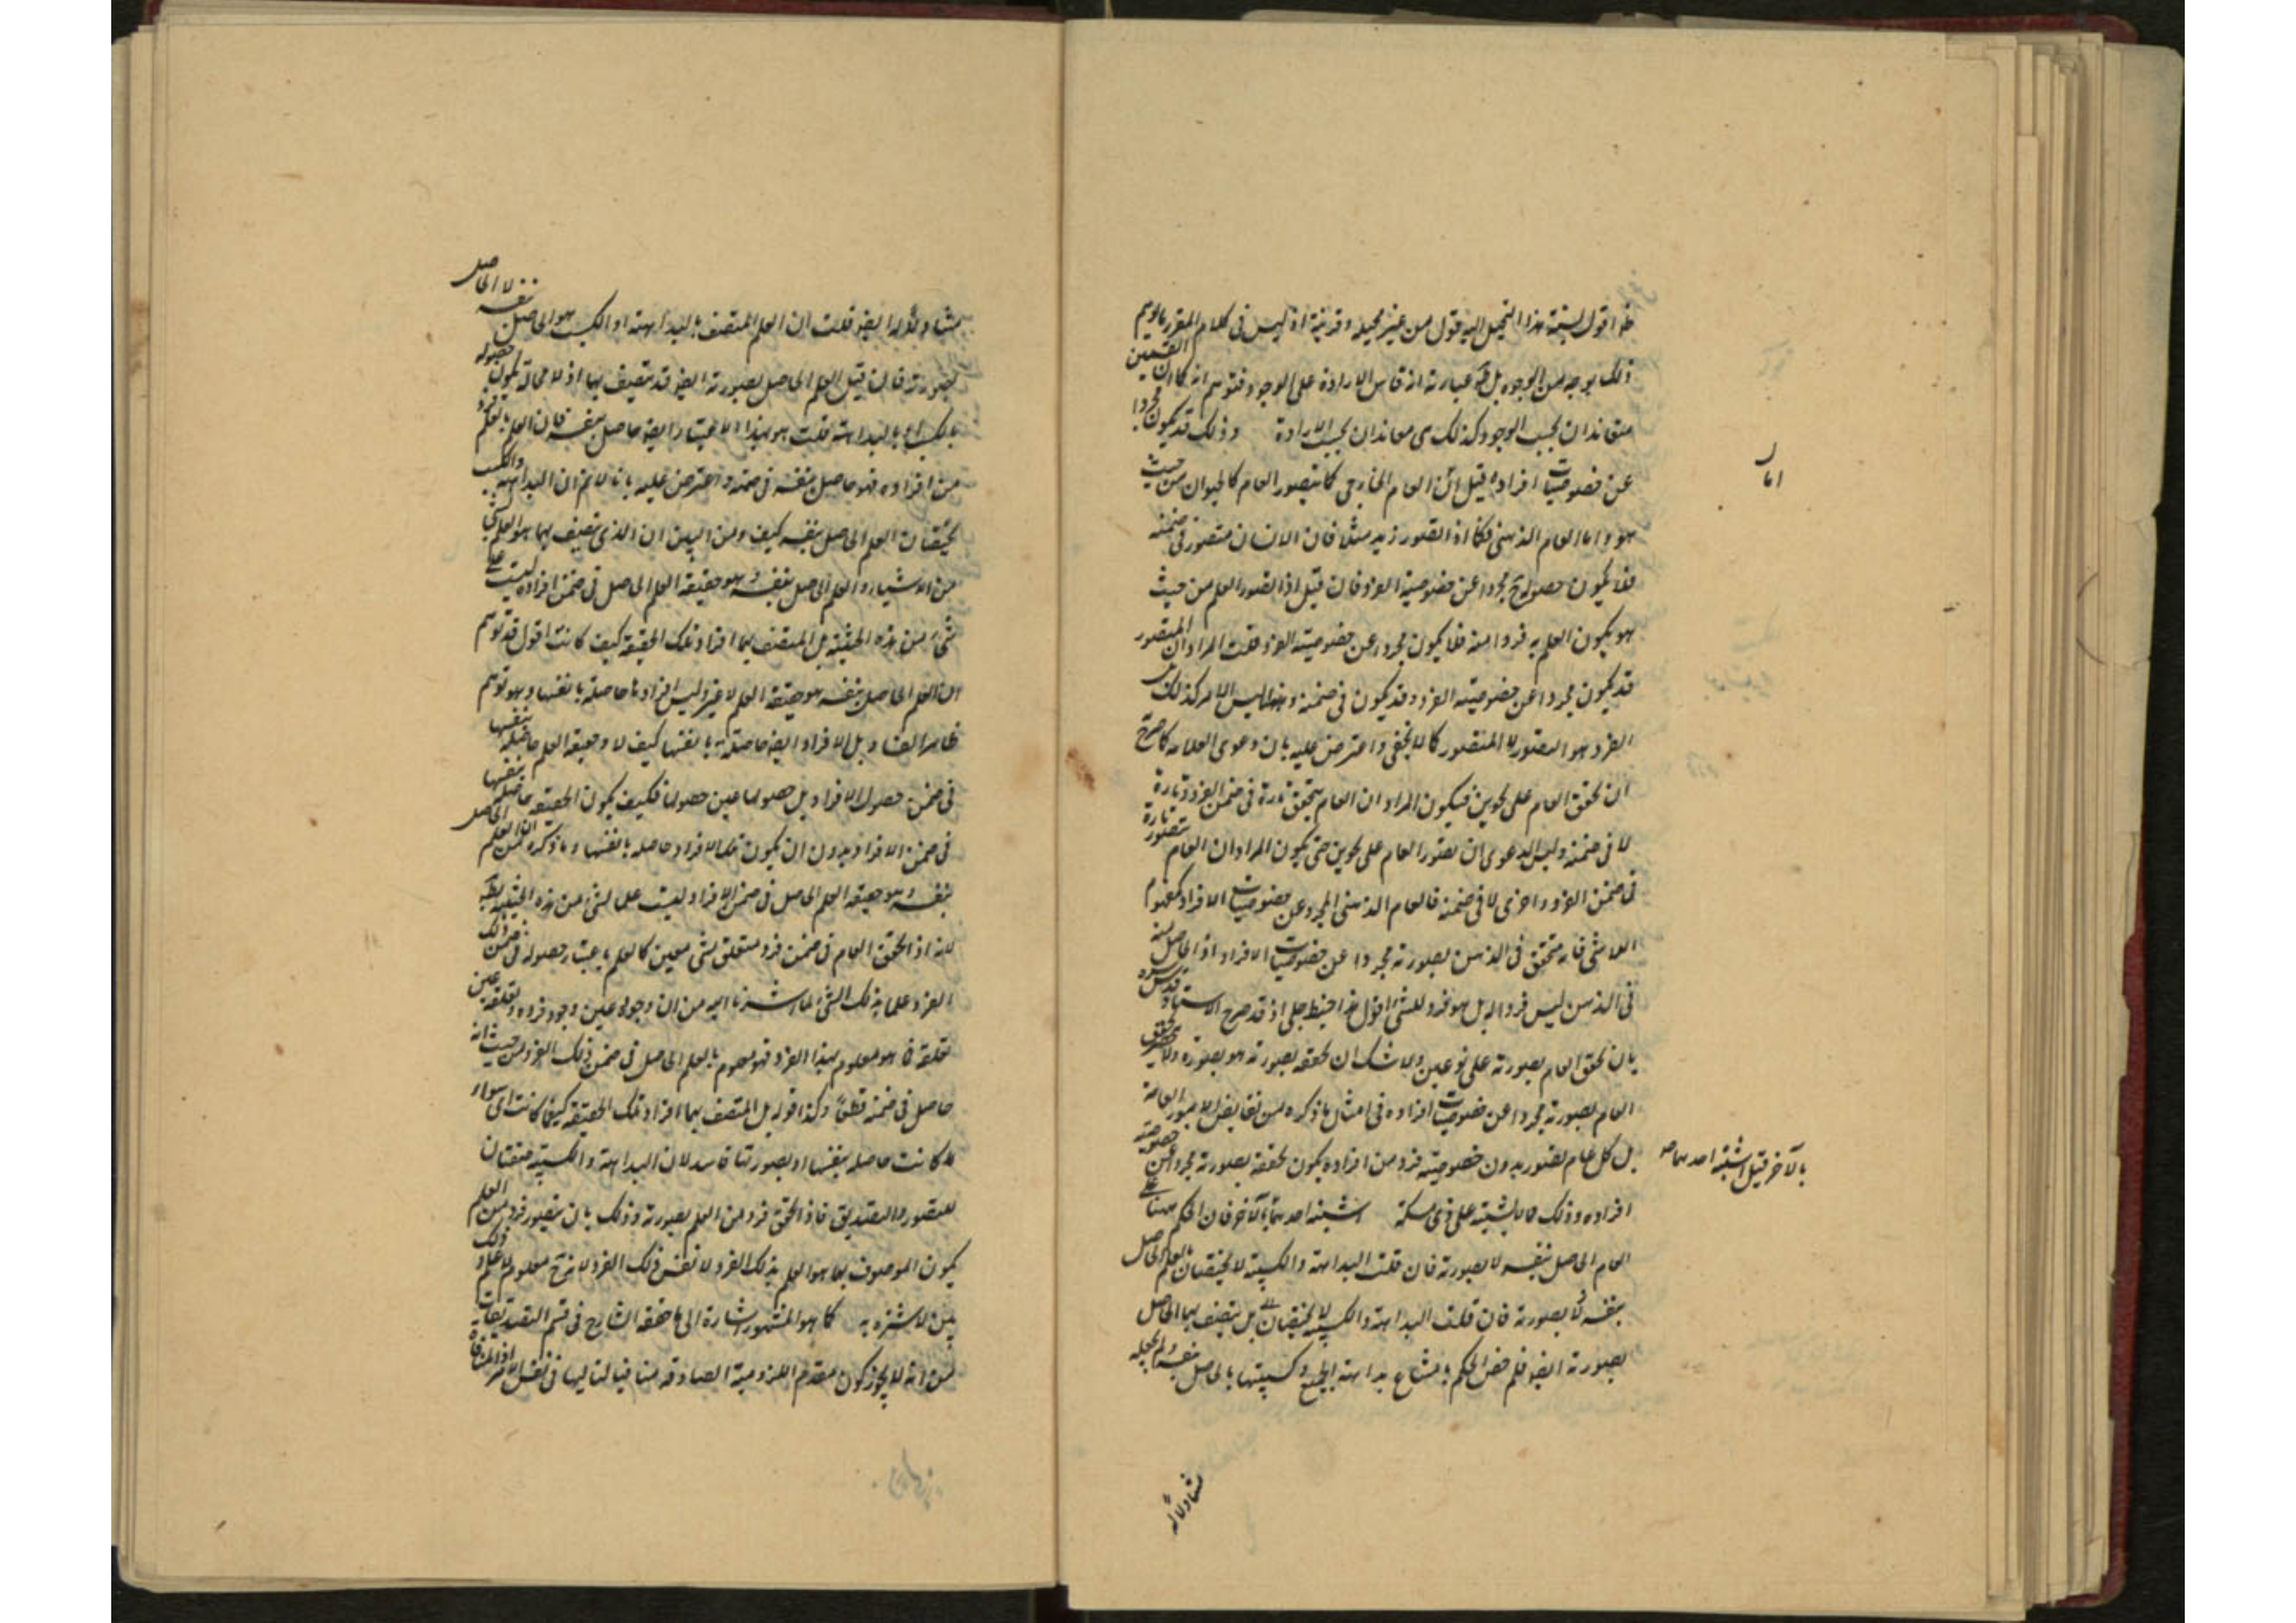 اقول نسبة هذا التخيل اليه قول من غير
ذلك بوجه من الوجوه بل عبارته انه قاس الارادة على الوجود فتوهم انه كما ان القسمين
متعاندان بحسب الوجود كذلك متعاندان بحسب الارادة وذلك قد يكون مجردا
عن خصوصيات افراده قيل العام الخارجي كما يتصور العام كالحيوان من حيث
هو واما العام الذهني فكما اذا تصور زيد مثلا فان الانسان متصور في ضمنه
فلا يكون حصوله مجردا عن خصوصية الفرد فان قيل اذا تصور العلم من حيث
هو يكون العلم به فردا منه فلا يكون مجردا عن خصوصية الفرد قلت المراد ان المتصور
قد يكون مجردا عن خصوصية الفرد وقد يكون في ضمنه وههنا ليس الامر كذلك
الفرد هو التصور لا المتصور كما لا يخفى واعترض عليه بان دعوى العلامة كما صرح
ان تحقق العام على نحوين فيكون المراد ان العام يتحقق تارة في ضمن الفرد وتارة
لا في ضمنه وليس الدعوى ان تصور العام على نحوين حتى يكون المراد ان العام يتصور تارة
في ضمن الفرد واخرى لا في ضمنه فالعام الذهني المجرد عن خصوصيات الافراد كمفهوم
اللاشئ فانه متحقق في الذهن بصورته مجردا عن خصوصيات الافراد اذ الحاصل منه
في الذهن ليس فردا له بل هو فرد للشئ اقول هذا خبط جلي اذ قد صرح الاستاذ قدس سره
بان تحقق العام بصورته على نوعين ولا شك ان تحققه بصورته هو تصوره
العام بصورته مجردا عن خصوصيات افراده في امثال ما ذكره من نقايض الامور العامة
بل كل عام تصور بدون خصوصية فرد من افراده يكون تحققه بصورته مجردا عن خصوصية
افراده وذلك مما لا يشتبه على ذي مسكة اشتبه احدهما بالآخر فان الحكم ههنا على
العام الحاصل بنفسه لا بصورته فان قلت البداهة والكسبية لا تختصان بالعلم الحاصل
بنفسه لا بصورته فان قلت البداهة والكسبية لا تختصان بل يتصف بهما الحاصل
بصورته ايضا فلم خص الحكم بامتناع بداهة الجميع وكسبيتها بالحاصل بنفسه ولم يجعله
اما
بالآخر قيل اشتبه احدهما
متناولا له
متناولا له ايضا قلت ان العلم المتصف بالبداهة او الكسب هو الحاصل بنفسه لا الحاصل
بصورته فان قيل العلم الحاصل بصورته ايضا قد يتصف بهما اذ لا محالة يكون حصوله
بالكسب او بالبداهة قلت هو بهذا الاعتبار ايضا حاصل بنفسه فان العلم بالعلم فرد
من افراده فهو حاصل بنفسه في ضمنه واعترض عليه بانا لا نم ان البداهة والكسب
تختصان العلم الحاصل بنفسه كيف ومن البين ان الذي يتصف بهما هو العلم
من الاشياء والعلم الحاصل بنفسه وهو حقيقة العلم الحاصل في ضمن افراده ليست علما
بشئ من هذه الحيثية بل المتصف بهما افراد تلك الحقيقة كيف كانت اقول قد توهم
ان العلم الحاصل بنفسه هو حقيقة العلم لا غير وليس افرادها حاصلة بانفسها وهو توهم
ظاهر الفساد بل الافراد ايضا حاصلة بانفسها كيف لا وحقيقة العلم حاصلة بنفسها
في ضمن حصول الافراد بل حصولها عين حصولها فكيف يكون الحقيقة حاصلة بنفسها
في ضمن الافراد بدون ان يكون تلك الافراد حاصلة بانفسها وما ذكره من ان العلم الحاصل
بنفسه وهو حقيقة العلم الحاصل في ضمن الافراد ليست علما بشئ من هذه الحيثية
لانه اذا تحقق العام في ضمن فرد متعلق بشئ معين كالعلم باعتبار حصوله في ضمن ذلك
الفرد علما بذلك الشئ لما اشرنا اليه من ان وجوده عين وجود فرده وتعلقه عين
تعلقه فما هو معلوم بهذا الفرد فهو معلوم بالعلم الحاصل في ضمن ذلك الفرد من حيث انه
حاصل في ضمنه قطعا وكذا قوله بل المتصف بهما افراد تلك الحقيقة كيفما كانت اى سواء
كانت حاصلة بنفسها او بصورتها فاسد لان البداهة والكسبية صفتان
للتصور والتصديق فاذا تحقق فرد من العلم بصورته وذلك بان يتصور فرد من العلم
يكون الموصوف بهما هو العلم بذلك الفرد لا نفس ذلك الفرد لانه ح معلوم لا علم
كما هو المشهور اشارة الى ما حققه الشارح في قسم التصديقات
من انه لا يجوز كون مقدم اللزومية الصادقة منافيا لتاليها في نفس الامر